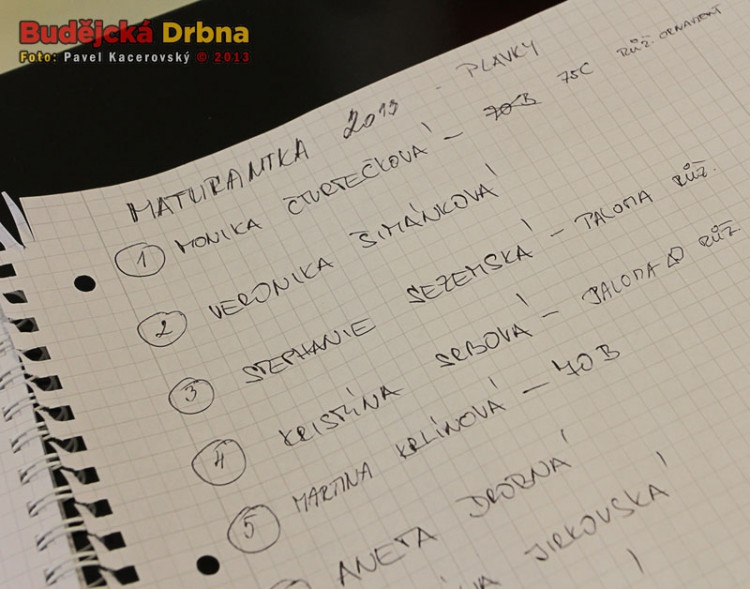 Budějcká Drbna
Foto: Pavel Kacerovský © 2013
MATURANTKA 2013 - PLAVKY
1 MONIKA ČTVRTEČKOVÁ - 70B 75C RŮŽ. ORNAMENT
2 VERONIKA ŠIMÁNKOVÁ
3 STEPHANIE SEZEMSKÁ - PALOMA RŮŽ.
4 KRISTÍNA SRBOVÁ - PALOMA RŮŽ
5 MARTINA KRLÍNOVÁ - 70B
ANETA DROBNÁ
JIRKOVSKÁ